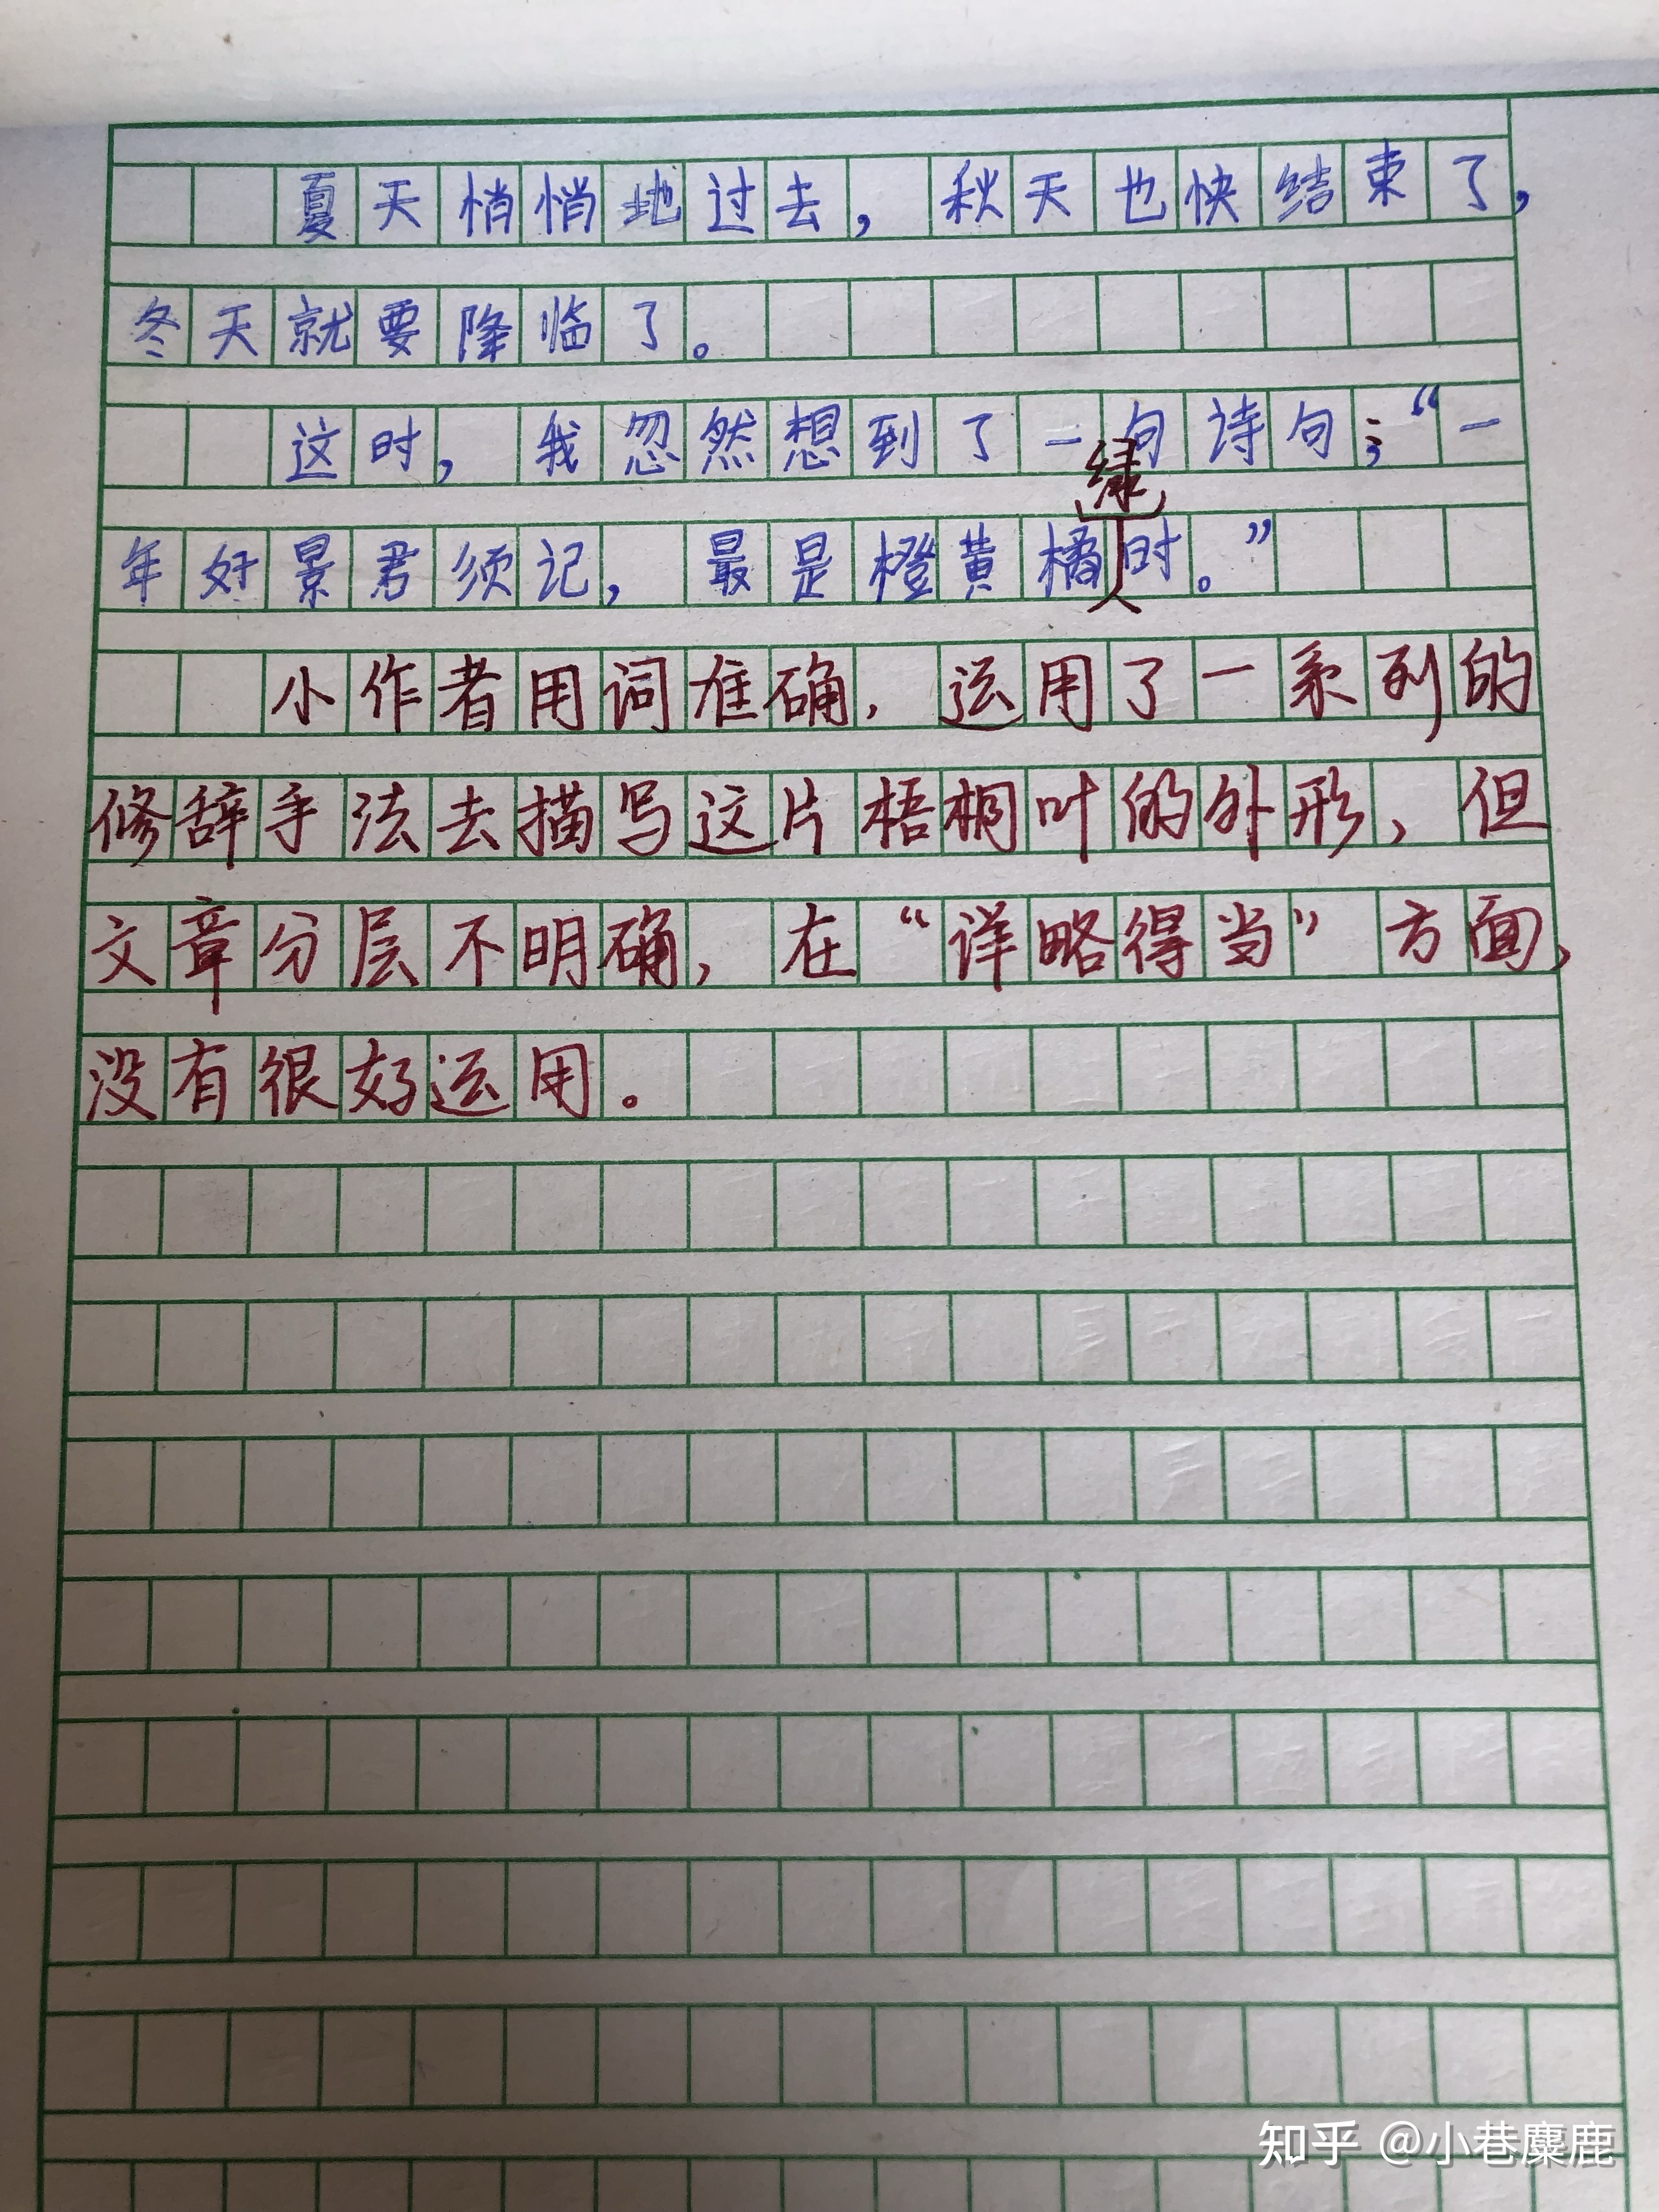 夏天悄悄地过去，秋天也快结束了，
冬天就要降临了。
这时，我忽然想到了一句诗句：“一
绿
年好景君须记，最是橙黄橘时。”
小作者用词准确，运用了一系列的
修辞手法去描写这片梧桐叶的外形，但
文章分层不明确，在“详略得当”方面，
没有很好运用。
知乎 @小巷麋鹿